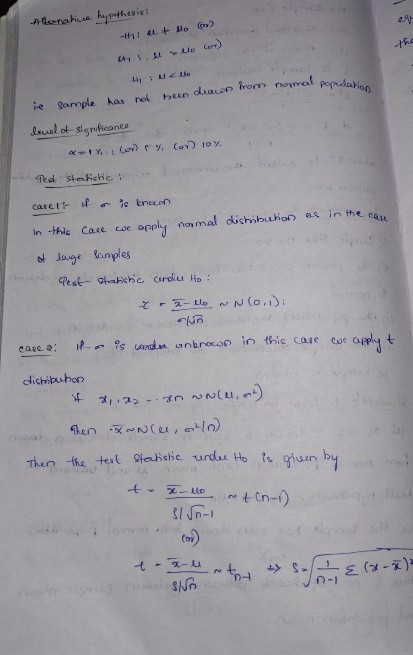 Alternative hypothesis:
H1: μ ≠ μ0 (or)
H1: μ > μ0 (or)
H1: μ < μ0
ie sample has not been drawn from normal population
level of significance
α = 1% (or) 5% (or) 10%.
Test statistic:
case1:- if σ is known
In this case we apply normal distribution as in the case
of large samples
Test-statistic under H0:
z = x̄-μ0 / σ/√n ~ N(0,1);
case 2: If σ is unknown in this case we apply t
distribution
if x1, x2 --- xn ~ N(μ, σ²)
Then x̄ ~ N(μ, σ²/n)
Then the test statistic under H0 is given by
t = x̄-μ0 / S/√n-1 ~ t(n-1)
(or)
t = x̄-μ / S/√n ~ tn-1 => S = √1/n-1 Σ(x-x̄)²